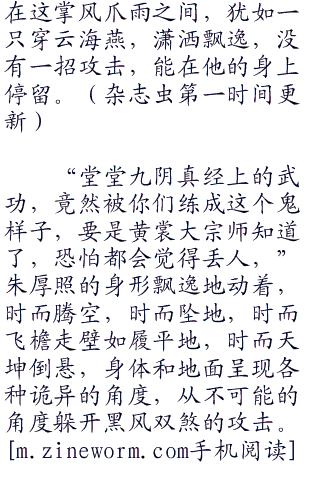 在这掌风爪雨之间，犹如一
只穿云海燕，潇洒飘逸，没
有一招攻击，能在他的身上
停留。（杂志虫第一时间更
新）
“堂堂九阴真经上的武
功，竟然被你们练成这个鬼
样子，要是黄裳大宗师知道
了，恐怕都会觉得丢人，”
朱厚照的身形飘逸地动着，
时而腾空，时而坠地，时而
飞檐走壁如履平地，时而天
坤倒悬，身体和地面呈现各
种诡异的角度，从不可能的
角度躲开黑风双煞的攻击。
[m.zineworm.com手机阅读]